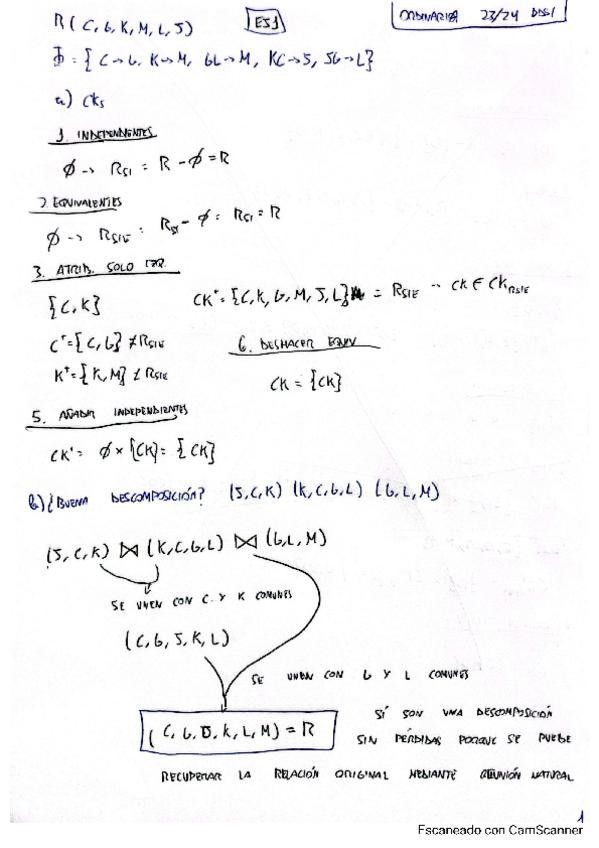 R(C,G,K,M,L,J) ES1 ORDINARIA 23/24 DBSI
Φ = { C→G, K→M, GL→M, KC→J, JG→L}
a) CKs
1. INDEPENDIENTES
∅ → RSI = R - ∅ = R
2. EQUIVALENTES
∅ → RSIE = RSI - ∅ = RSI = R
3. ATRIB. SOLO IZQ.
{C,K} CK⁺={C,K,G,M,J,L} = RSIE → CK ∈ CK RSIE
C⁺={C,G} ≠ RSIE 6. DESHACER EQUIV
K⁺={K,M} ≠ RSIE CK = {CK}
5. AÑADIR INDEPENDIENTES
CK' = ∅ × {CK} = {CK}
b) ¿BUENA DESCOMPOSICIÓN? (J,C,K) (K,C,G,L) (G,L,M)
(J,C,K) ⋈ (K,C,G,L) ⋈ (G,L,M)
SE UNEN CON C Y K COMUNES
(C,G,J,K,L)
SE UNEN CON G Y L COMUNES
(C,G,J,K,L,M) = R SÍ SON UNA DESCOMPOSICIÓN
SIN PÉRDIDAS PORQUE SE PUEDE
RECUPERAR LA RELACIÓN ORIGINAL MEDIANTE REUNIÓN NATURAL
1
Escaneado con CamScanner